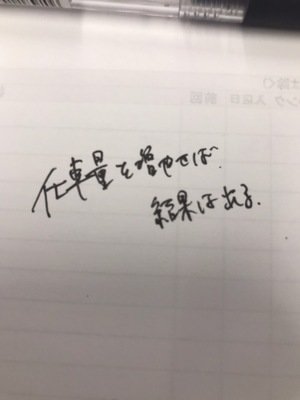 仕事量を増やせば、
結果は出る。